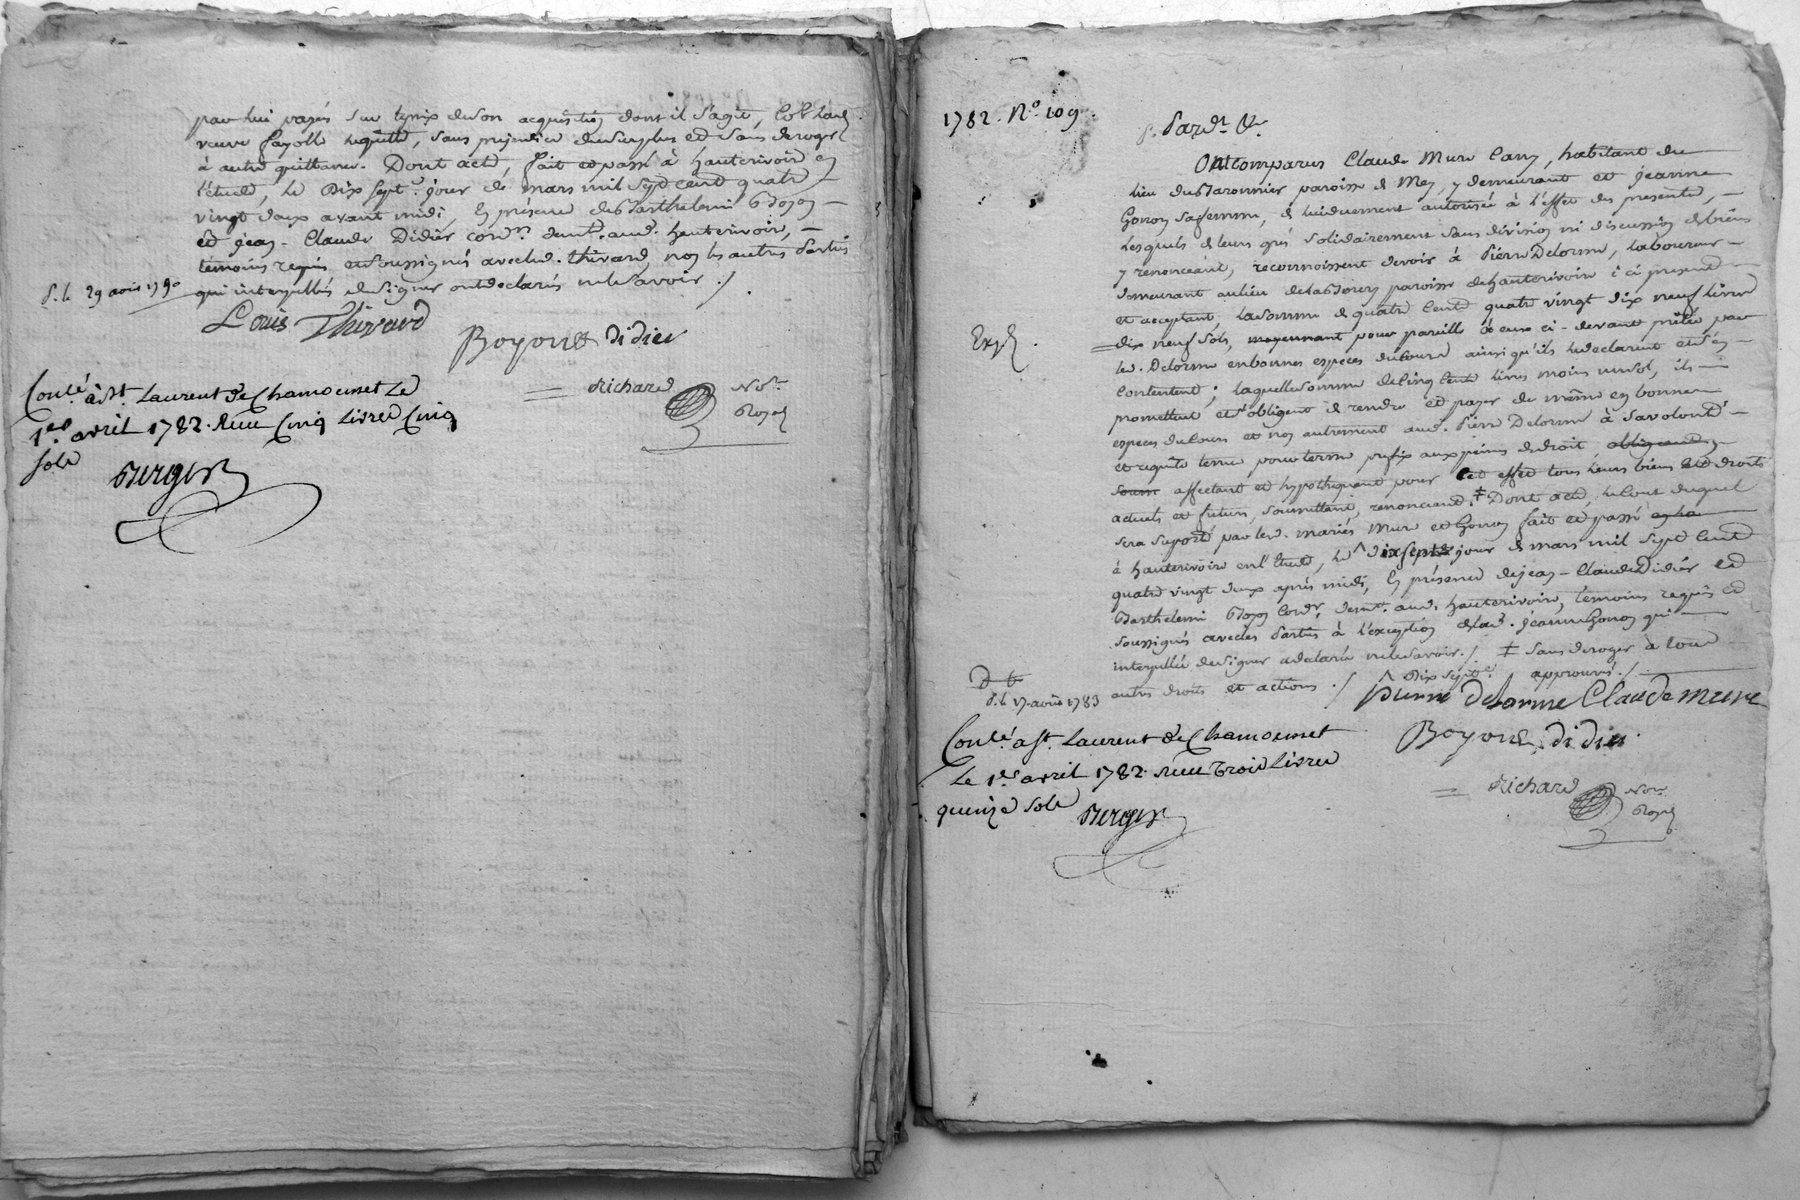 par lui payés sur le prix de son acquisition dont il s'agit,
veuve fayolle requise, sans préjudice du surplus et sans deroger
à autre quittance. Dont acte, fait et passé à hauterivoire en
l'étude, le Dix sept.e jour de mars mil sept cent quatre
vingt deux avant midi, En présence de Barthelemi Boyon
et jean-Claude Didier cord.rs dem.t aud. hauterivoire,
temoins requis et soussignés avec led. thivard, non les autres parties
qui interpellées de signer ont declarés ne le savoir ./.
d. le 29 aoust 1790
Louis Thivard
Boyon didier
Conlé à St. Laurent de Chamousset Le
1er avril 1782. Reçu Cinq Livres Cinq
sols
Berger
Richard No.re
Royal
1782. N.o 109.
p. Pard.t &.
Ont comparus Claude Mure Cany, habitant du
lieu du Baronnier paroisse de Mey, y demeurant et jeanne
Gonon sa femme, de lui duement autorisée à l'effet des presentes,
Lesquels de leurs grés solidairement sans division ni discussion de biens
y renonceant, reconnoissent devoir à Pierre Delorme, laboureur
demeurant au lieu de la paroisse de hauterivoire ici present
et acceptant, la somme de quatre Cent quatre vingt dix neuf livres
dix neuf sols, moyennant pour pareille à eux ci-devant prêtée par
led. Delorme en bonnes especes du Cours ainsi qu'ils le declarent et s'en
Contentent ; laquelle somme de Cinq Cent livres moins un sol, ils
promettent et s'obligent de rendre et payer de même en bonnes
especes du Cours et non autrement aud. Pierre Delorme à sa volonté
et requête terme pour terme prefix aux peines de droit obligeant,
soum affectant et hypothequant pour Cet effet tous leurs biens et droits
actuels et futurs, soumettant, renonceant ‡ Dont acte, le Cout duquel
sera suporté par les d. mariés Mure et Gonon fait et passé
à hauterivoire en l'Etude, le ^ dix sept jour de mars mil sept Cent
quatre vingt deux après midi, En présence de jean-Claude Didier et
Barthelemi Boyon Cord.rs dem.t aud. hauterivoire, temoins requis et
soussignés avec les parties à l'exception de lad. jeanne Gonon qui
interpellée de signer a declaré ne le savoir ./. ‡ sans deroger à tous
autres droits et actions ./. ^ Dix sept.e approuvés ./.
Exp
d. le 17 aoust 1783
pierre delorme Claude mure
Boyon didier
Conlé à St. Laurent de Chamousset
Le 1er avril 1782. Reçu Trois Livres
quinze sols Berger
Richard No.re
Royal